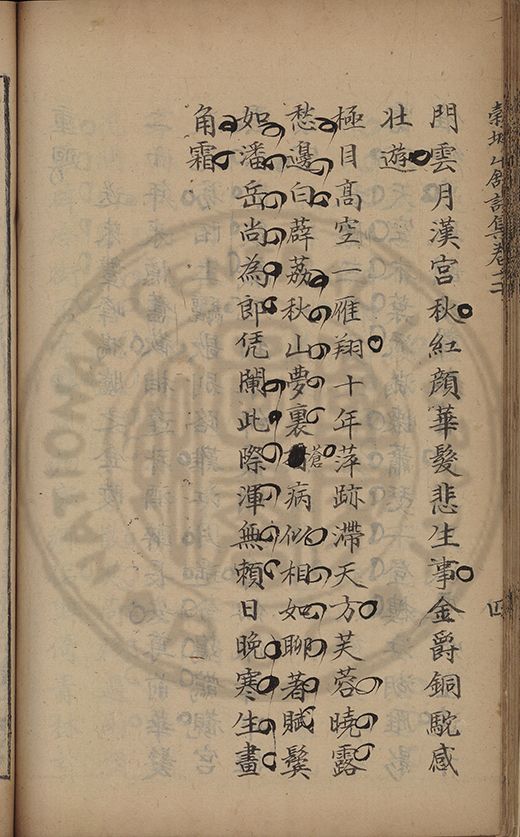 門雲月漢宮秋紅顏華髮悲生事金爵銅駝感
壯遊
極目高空一雁翔十年萍跡滯天方芙蓉曉露
愁邊白薜荔秋山夢裏蒼病似相如聊著賦鬢
如潘岳尚為郎凭闌此際渾無賴日晚寒生畫
角霜
四